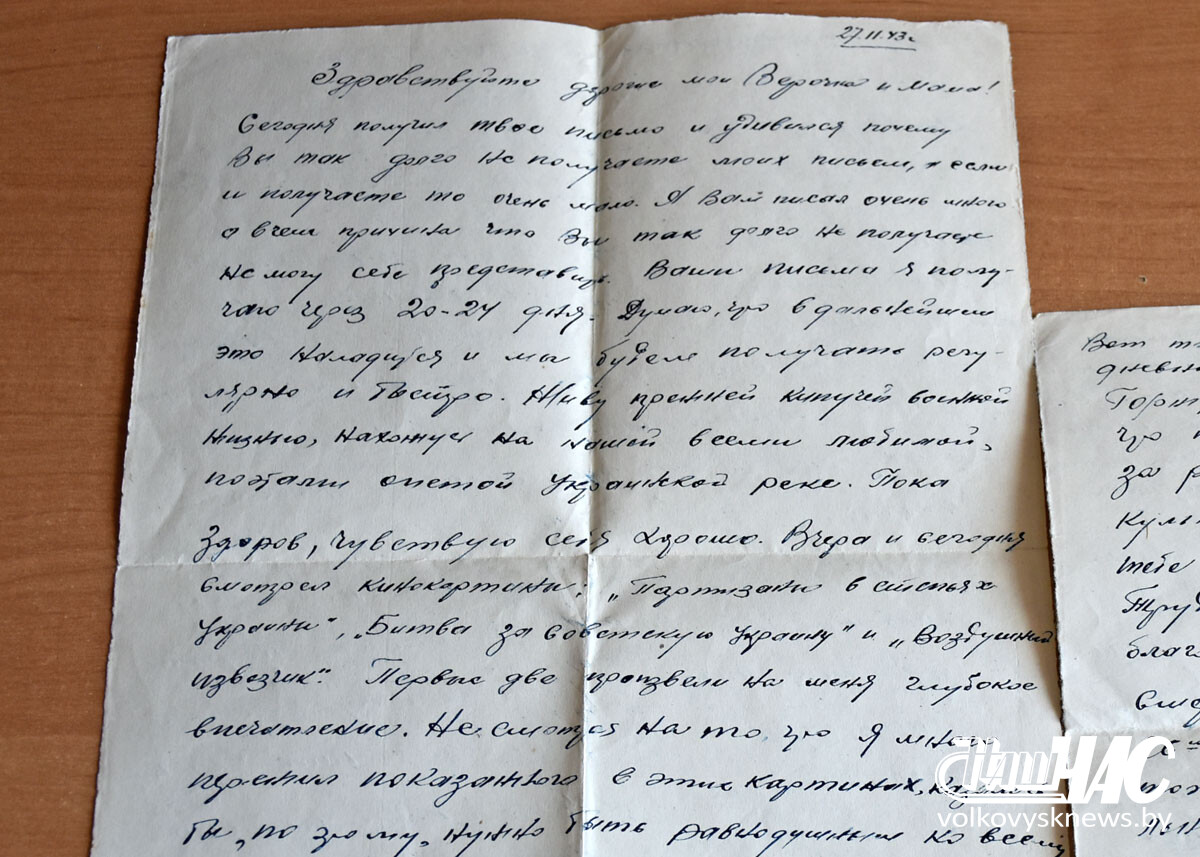 27.11.43г.
Здравствуйте дорогие мои Верочка и мама!
Сегодня получил твое письмо и удивился почему
Вы так долго не получаете моих писем, а если
и получаете то очень мало. Я Вам писал очень много
о всем причина что Вы так долго не получаете
не могу себе представить. Ваши письма я полу-
чаю через 20-24 дня. Думаю, что в дальнейшем
это наладится и мы будем получать регу-
лярно и быстро. Живу прежней кипучей военной
жизнью, нахожусь на нашей всеми любимой,
поэтами опетой украинской реке. Пока
здоров, чувствую себя хорошо. Вчера и сегодня
смотрел кинокартины: „Партизаны в степях
Украины", „Битва за советскую Украину" и „Воздушный
извозчик". Первые две произвели на меня глубокое
впечатление. Не смотря на то, что я много
пережил показанного в этих картинах, казалось
бы, по этому, нужно быть равнодушным ко всему
Вот
дневн
что
за
Куль
тебе
Труд
благ
След
НАШ ЧАС
volkovysknews.by